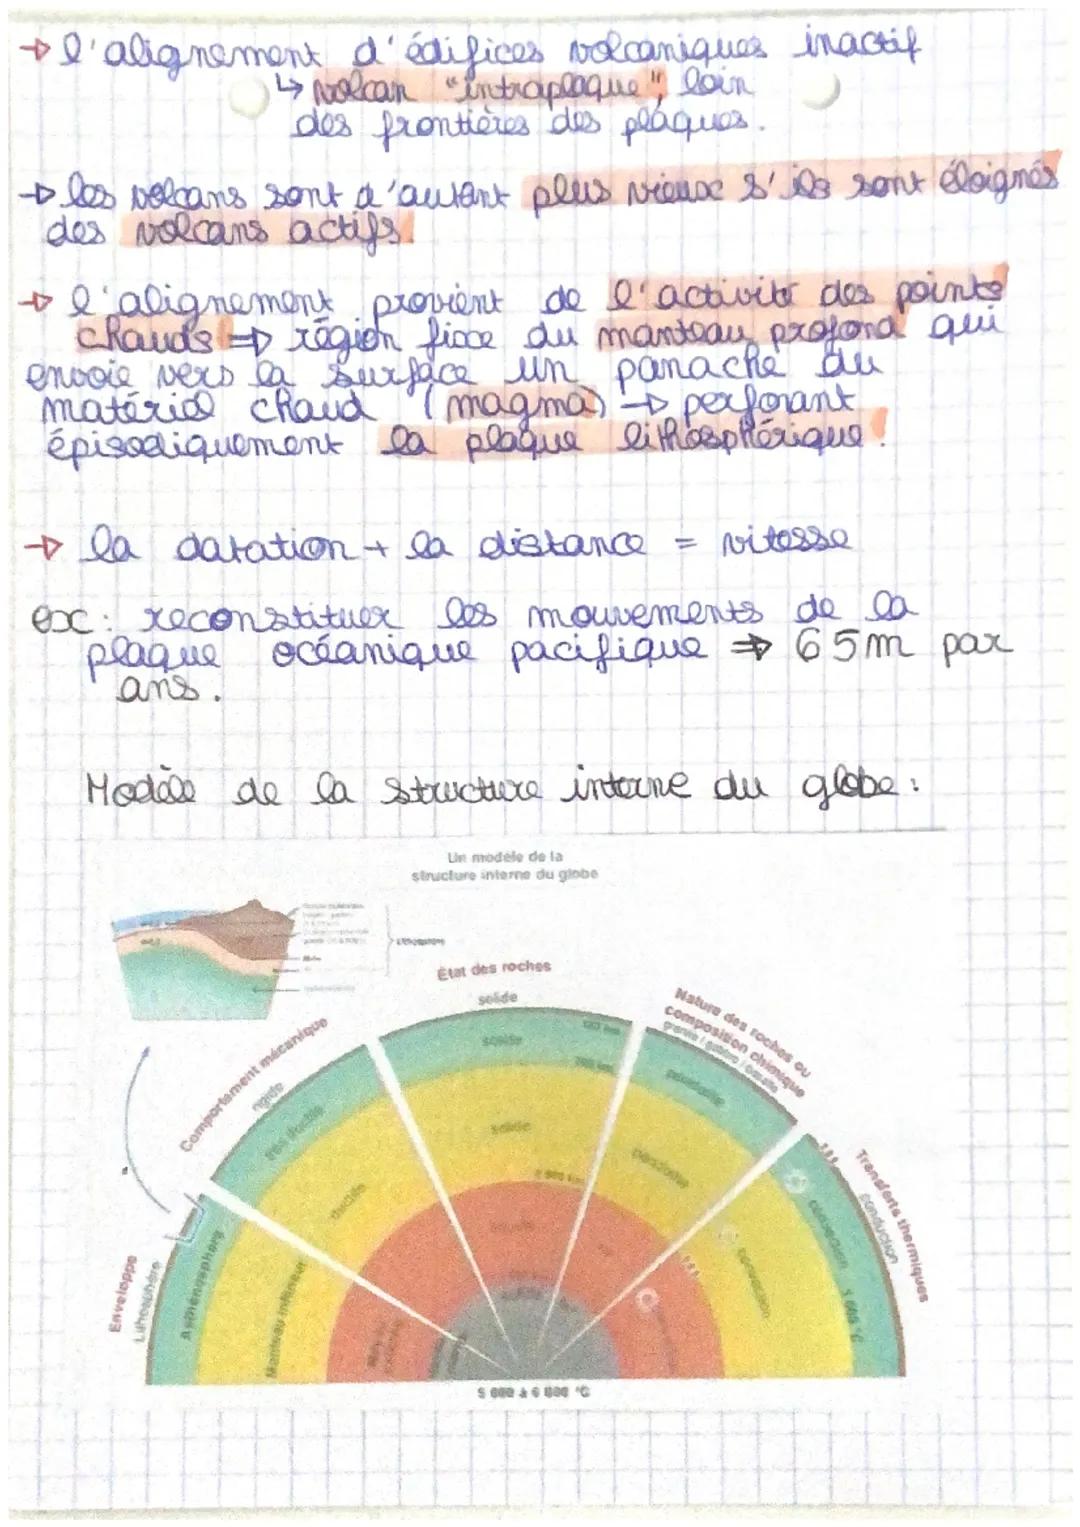 → l'alignement d'édifices volcaniques inactif
↳ volcan "intraplaque", loin
des frontières des plaques.
→ les volcans sont d'autant plus vieux s'ils sont éloignés
des volcans actifs.
→ l'alignement provient de l'activité des points
chauds ⇒ région fixe du manteau profond qui
envoie vers la surface un panache du
matériel chaud (magma) → perforant
épisodiquement la plaque lithosphérique.
→ la datation + la distance = vitesse
ex: reconstituer les mouvements de la
plaque océanique pacifique ⇒ 65m par
ans.
Modèle de la structure interne du globe:
Un modèle de la
structure interne du globe
État des roches
solide
solide
solide
Comportement mécanique
rigide
ductile
Nature des roches ou
composition chimique
péridotite
Transferts thermiques
conduction
convection
convection
Enveloppe
Lithosphère
Asthénosphère
Manteau inférieur
5 000 à 6 000 °C